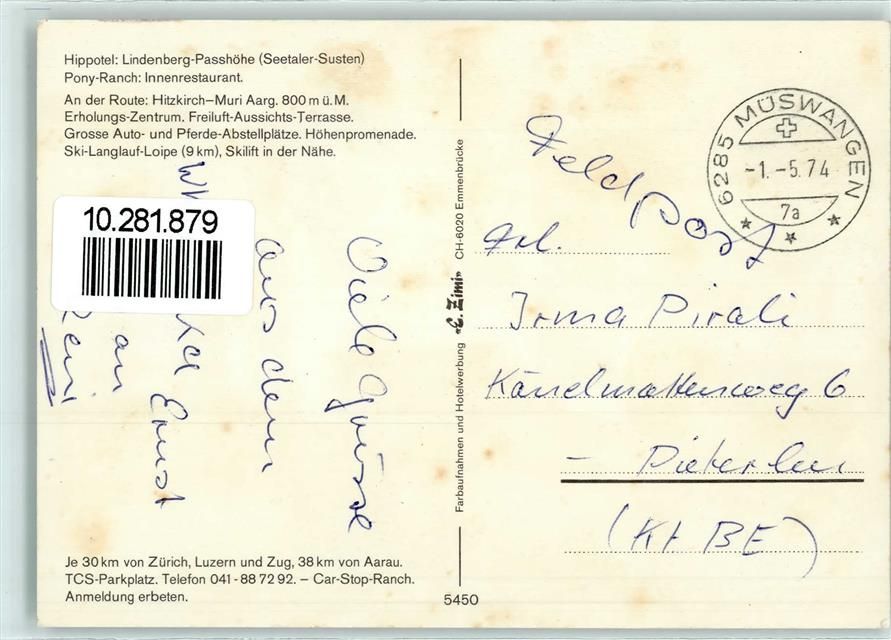 Hippotel: Lindenberg-Passhöhe (Seetaler-Susten)
Pony-Ranch: Innenrestaurant.
An der Route: Hitzkirch–Muri Aarg. 800 m ü. M.
Erholungs-Zentrum. Freiluft-Aussichts-Terrasse.
Grosse Auto- und Pferde-Abstellplätze. Höhenpromenade.
Ski-Langlauf-Loipe (9 km), Skilift in der Nähe.
10.281.879
Viele Grüsse
aus dem
Ernst
an
Je 30 km von Zürich, Luzern und Zug, 38 km von Aarau.
TCS-Parkplatz. Telefon 041 - 88 72 92. – Car-Stop-Ranch.
Anmeldung erbeten.
Farbaufnahmen und Hotelwerbung «E. Zimi» CH-6020 Emmenbrücke
5450
6285 MÜSWANGEN
-1.-5.74
7a
Feldpost
Frl.
Irma Pirali
Känelmattenweg 6
– Pieterlen
(Kt BE)